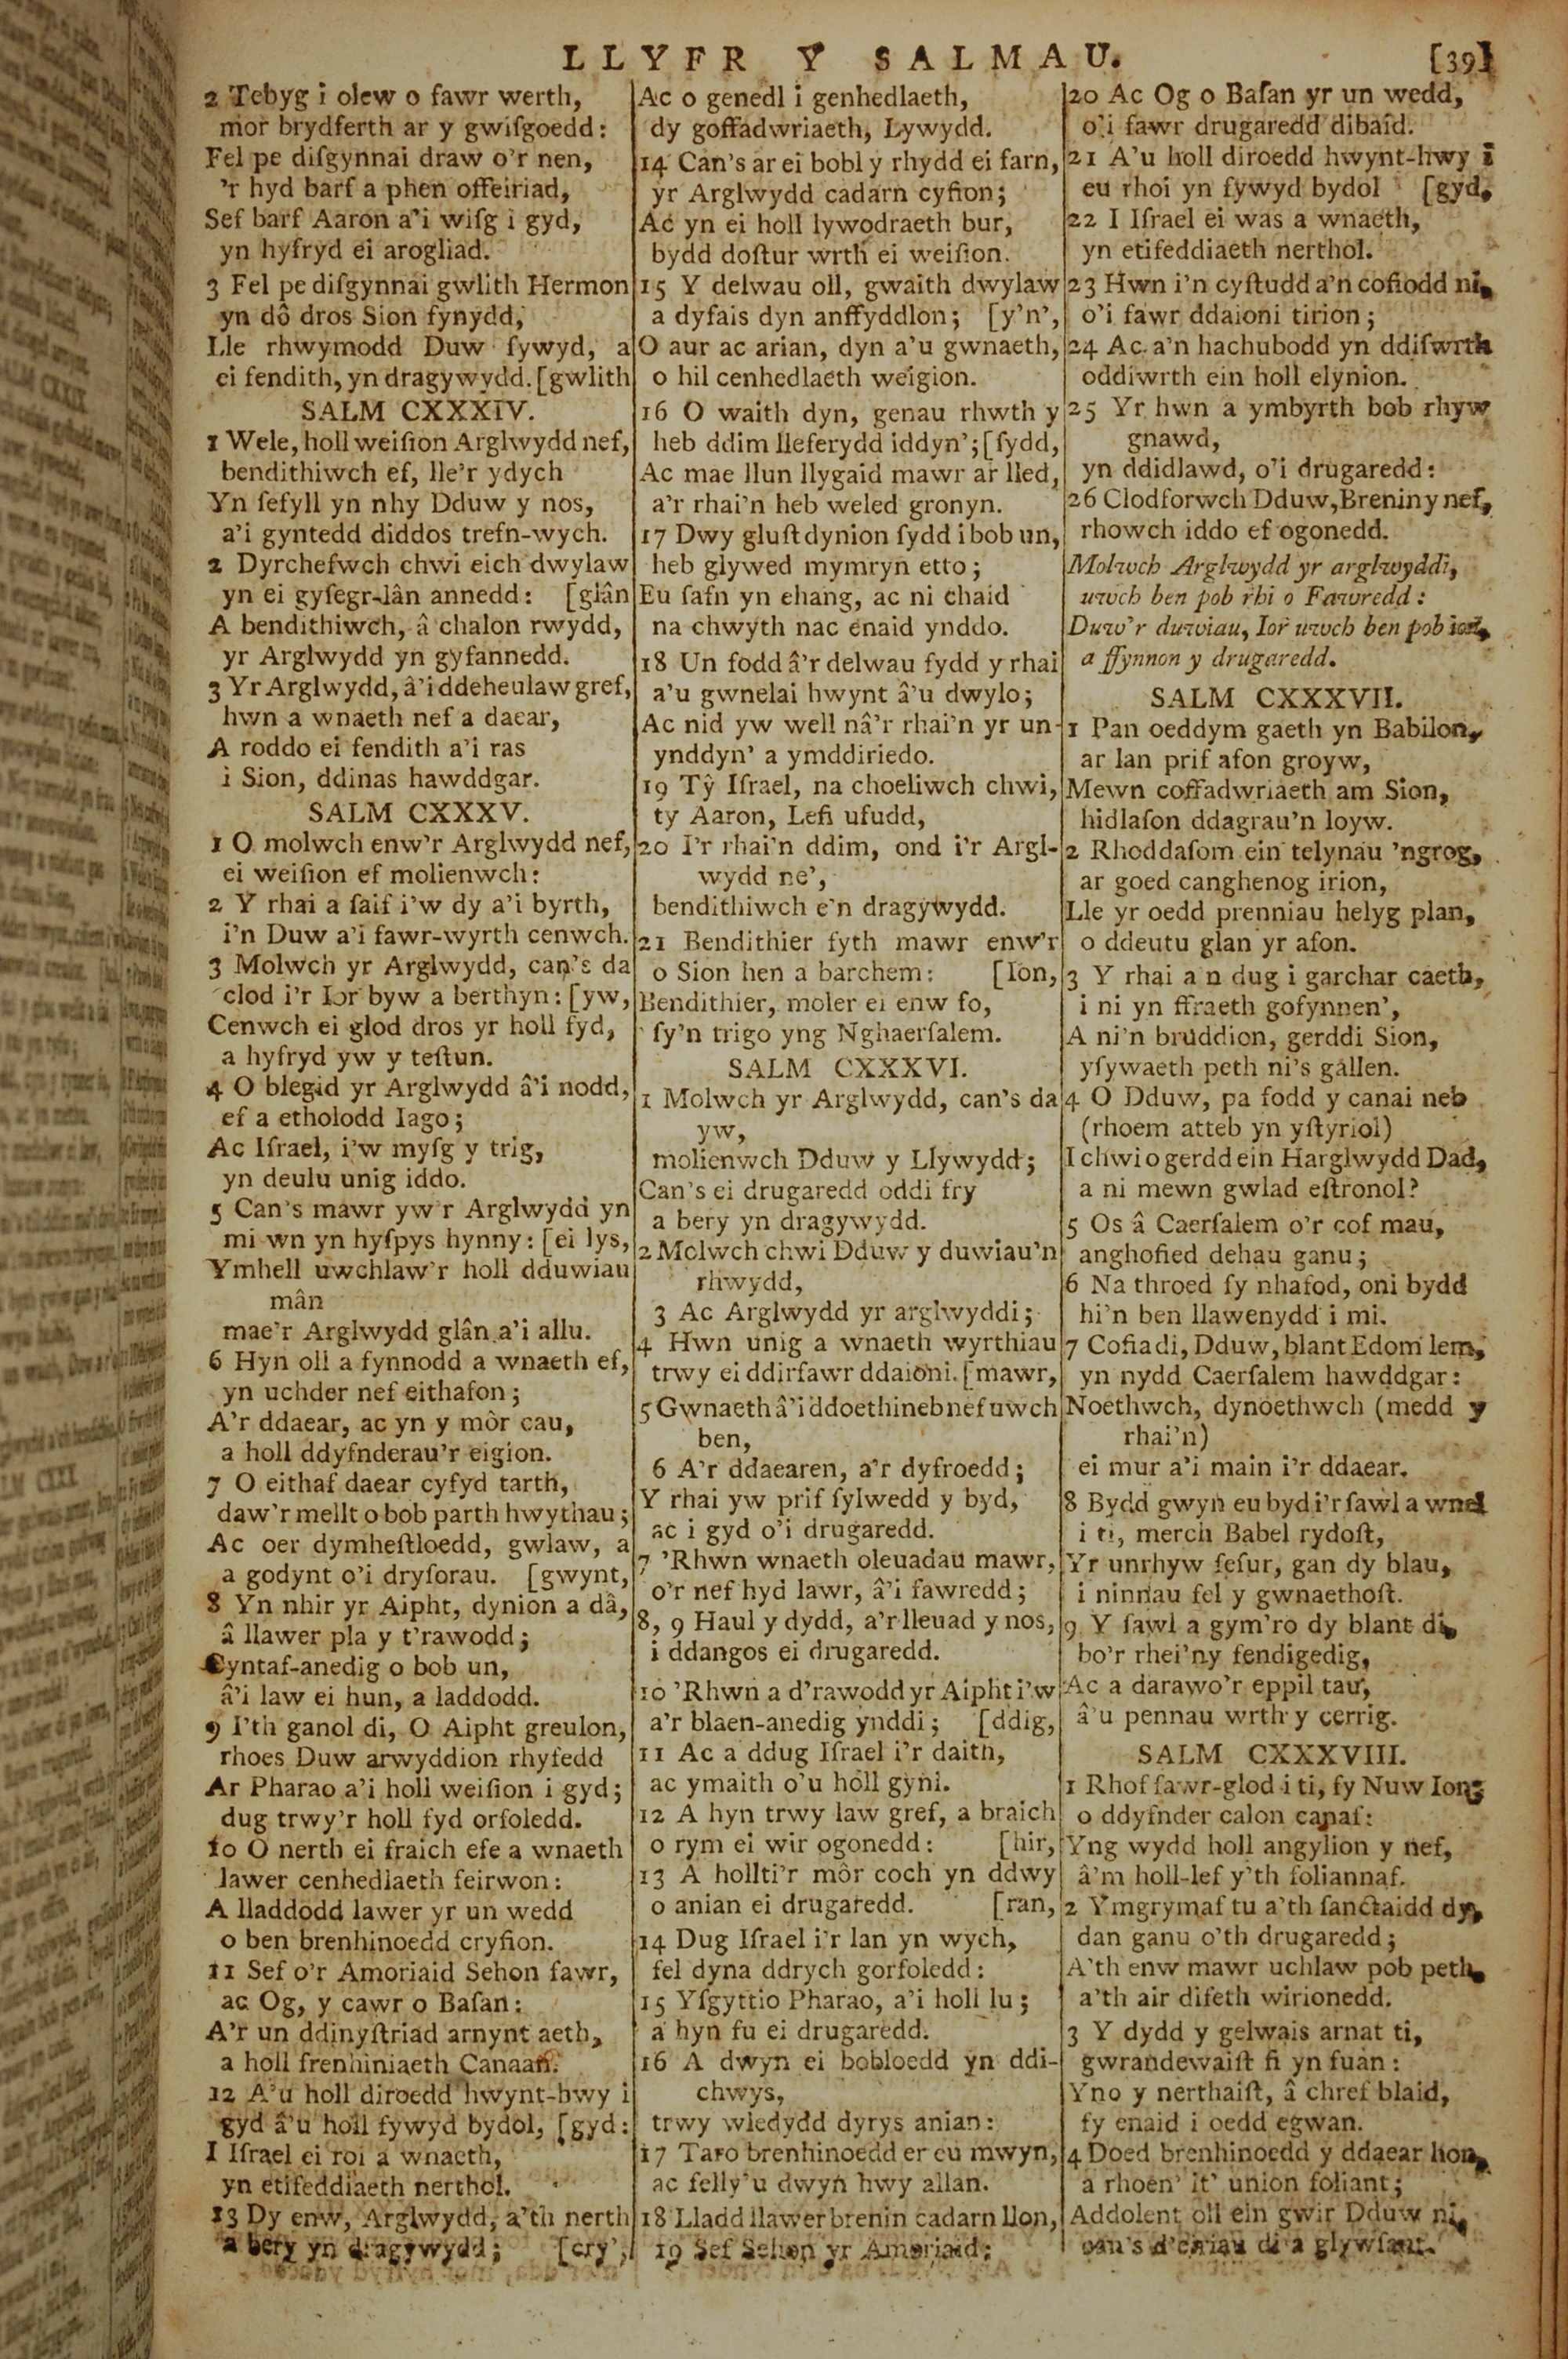 LLYFR Y SALMAU. [39]
2 Tebyg i olew o fawr werth,
mor brydferth ar y gwiſgoedd:
Fel pe diſgynnai draw o'r nen,
'r hyd barf a phen offeiriad,
Sef barf Aaron a'i wiſg i gyd,
yn hyfryd ei arogliad.
3 Fel pe diſgynnai gwlith Hermon
yn dô dros Sion fynydd,
Lle rhwymodd Duw fywyd, a
ei fendith, yn dragywydd. [gwlith
SALM CXXXIV.
1 Wele, holl weiſion Arglwydd nef,
bendithiwch ef, lle'r ydych
Yn ſefyll yn nhy Dduw y nos,
a'i gyntedd diddos trefn-wych.
2 Dyrchefwch chwi eich dwylaw
yn ei gyſegr-lân annedd: [glân
A bendithiwch, â chalon rwydd,
yr Arglwydd yn gyfannedd.
3 Yr Arglwydd, â'i ddeheulaw gref,
hwn a wnaeth nef a daear,
A roddo ei fendith a'i ras
i Sion, ddinas hawddgar.
SALM CXXXV.
1 O molwch enw'r Arglwydd nef,
ei weiſion ef molienwch:
2 Y rhai a ſaif i'w dy a'i byrth,
i'n Duw a'i fawr-wyrth cenwch.
3 Molwch yr Arglwydd, can's da
clod i'r Ior byw a berthyn: [yw,
Cenwch ei glod dros yr holl fyd,
a hyfryd yw y teſtun.
4 O blegid yr Arglwydd â'i nodd,
ef a etholodd Iago;
Ac Iſrael, i'w myſg y trig,
yn deulu unig iddo.
5 Can's mawr yw'r Arglwydd yn
mi wn yn hyſpys hynny: [ei lys,
Ymhell uwchlaw'r holl dduwiau
mân
mae'r Arglwydd glân a'i allu.
6 Hyn oll a fynnodd a wnaeth ef,
yn uchder nef eithafon;
A'r ddaear, ac yn y môr cau,
a holl ddyfnderau'r eigion.
7 O eithaf daear cyfyd tarth,
daw'r mellt o bob parth hwythau;
Ac oer dymheſtloedd, gwlaw, a
a godynt o'i dryſorau. [gwynt,
8 Yn nhir yr Aipht, dynion a dâ,
â llawer pla y t'rawodd;
Cyntaf-anedig o bob un,
â'i law ei hun, a laddodd.
9 I'th ganol di, O Aipht greulon,
rhoes Duw arwyddion rhyfedd
Ar Pharao a'i holl weiſion i gyd;
dug trwy'r holl fyd orfoledd.
10 O nerth ei fraich efe a wnaeth
lawer cenhedlaeth feirwon:
A lladdodd lawer yr un wedd
o ben brenhinoedd cryfion.
11 Sef o'r Amoriaid Sehon fawr,
ac Og, y cawr o Baſan:
A'r un ddinyſtriad arnynt aeth,
a holl frenhiniaeth Canaan.
12 A'u holl diroedd hwynt-hwy i
gyd â'u holl fywyd bydol, [gyd:
I Iſrael ei roi a wnaeth,
yn etifeddiaeth nerthol.
13 Dy enw, Arglwydd, a'th nerth
a bery yn dragywydd; [cry',
Ac o genedl i genhedlaeth,
dy goffadwriaeth, Lywydd.
14 Can's ar ei bobl y rhydd ei farn,
yr Arglwydd cadarn cyfion;
Ac yn ei holl lywodraeth bur,
bydd doſtur wrth ei weiſion.
15 Y delwau oll, gwaith dwylaw
a dyfais dyn anffyddlon; [y'n',
O aur ac arian, dyn a'u gwnaeth,
o hil cenhedlaeth weigion.
16 O waith dyn, genau rhwth y
heb ddim lleferydd iddyn'; [ſydd,
Ac mae llun llygaid mawr ar lled,
a'r rhai'n heb weled gronyn.
17 Dwy gluſt dynion ſydd i bob un,
heb glywed mymryn etto;
Eu ſafn yn ehang, ac ni chaid
na chwyth nac enaid ynddo.
18 Un fodd â'r delwau fydd y rhai
a'u gwnelai hwynt â'u dwylo;
Ac nid yw well nâ'r rhai'n yr un
ynddyn' a ymddiriedo.
19 Tŷ Iſrael, na choeliwch chwi,
ty Aaron, Lefi ufudd,
20 I'r rhai'n ddim, ond i'r Argl-
wydd ne',
bendithiwch e'n dragywydd.
21 Bendithier fyth mawr enw'r
o Sion hen a barchem: [Ion,
Bendithier, moler ei enw fo,
ſy'n trigo yng Nghaerſalem.
SALM CXXXVI.
1 Molwch yr Arglwydd, can's da
yw,
molienwch Dduw y Llywydd;
Can's ei drugaredd oddi fry
a bery yn dragywydd.
2 Molwch chwi Dduw y duwiau'n
rhwydd,
3 Ac Arglwydd yr arglwyddi;
4 Hwn unig a wnaeth wyrthiau
trwy ei ddirfawr ddaioni. [mawr,
5 Gwnaeth â'i ddoethineb nef uwch
ben,
6 A'r ddaearen, a'r dyfroedd;
Y rhai yw prif ſylwedd y byd,
ac i gyd o'i drugaredd.
7 'Rhwn wnaeth oleuadau mawr,
o'r nef hyd lawr, â'i fawredd;
8, 9 Haul y dydd, a'r lleuad y nos,
i ddangos ei drugaredd.
10 'Rhwn a d'rawodd yr Aipht i'w
a'r blaen-anedig ynddi; [ddig,
11 Ac a ddug Iſrael i'r daith,
ac ymaith o'u holl gyni.
12 A hyn trwy law gref, a braich
o rym ei wir ogonedd: [hir,
13 A hollti'r môr coch yn ddwy
o anian ei drugaredd. [ran,
14 Dug Iſrael i'r lan yn wych,
fel dyna ddrych gorfoledd:
15 Yſgyttio Pharao, a'i holl lu;
a hyn fu ei drugaredd.
16 A dwyn ei bobloedd yn ddi-
chwys,
trwy wledydd dyrys anian:
17 Taro brenhinoedd er eu mwyn,
ac felly'u dwyn hwy allan.
18 Lladd llawer brenin cadarn llon,
19 Sef Sehon yr Amoriaid;
20 Ac Og o Baſan yr un wedd,
o'i fawr drugaredd dibaid.
21 A'u holl diroedd hwynt-hwy i
eu rhoi yn fywyd bydol [gyd,
22 I Iſrael ei was a wnaeth,
yn etifeddiaeth nerthol.
23 Hwn i'n cyſtudd a'n cofiodd ni,
o'i fawr ddaioni tirion;
24 Ac a'n hachubodd yn ddiſwrth
oddiwrth ein holl elynion.
25 Yr hwn a ymbyrth bob rhyw
gnawd,
yn ddidlawd, o'i drugaredd:
26 Clodforwch Dduw, Brenin y nef,
rhowch iddo ef ogonedd.
Molwch Arglwydd yr arglwyddi,
uwch ben pob rhi o Fawredd:
Duw'r duwiau, Ior uwch ben pob ior,
a ffynnon y drugaredd.
SALM CXXXVII.
1 Pan oeddym gaeth yn Babilon,
ar lan prif afon groyw,
Mewn coffadwriaeth am Sion,
hidlaſon ddagrau'n loyw.
2 Rhoddaſom ein telynau 'ngrog,
ar goed canghenog irion,
Lle yr oedd prenniau helyg plan,
o ddeutu glan yr afon.
3 Y rhai a n dug i garchar caeth,
i ni yn ffraeth gofynnen',
A ni'n bruddion, gerddi Sion,
yſywaeth peth ni's gallen.
4 O Dduw, pa fodd y canai neb
(rhoem atteb yn yſtyriol)
I chwi o gerdd ein Harglwydd Dad,
a ni mewn gwlad eſtronol?
5 Os â Caerſalem o'r cof mau,
anghofied dehau ganu;
6 Na throed fy nhafod, oni bydd
hi'n ben llawenydd i mi.
7 Cofia di, Dduw, blant Edom lem,
yn nydd Caerſalem hawddgar:
Noethwch, dynoethwch (medd y
rhai'n)
ei mur a'i main i'r ddaear.
8 Bydd gwyn eu byd i'r ſawl a wnel
i ti, merch Babel rydoſt,
Yr unrhyw feſur, gan dy blau,
i ninnau fel y gwnaethoſt.
9 Y ſawl a gym'ro dy blant di,
bo'r rhei'ny fendigedig,
Ac a darawo'r eppil tau,
â'u pennau wrth y cerrig.
SALM CXXXVIII.
1 Rhof fawr-glod i ti, fy Nuw Ion;
o ddyfnder calon canaf:
Yng wydd holl angylion y nef,
â'm holl-lef y'th foliannaf.
2 Ymgrymaf tu a'th ſanctaidd dy,
dan ganu o'th drugaredd;
A'th enw mawr uchlaw pob peth,
a'th air difeth wirionedd.
3 Y dydd y gelwais arnat ti,
gwrandewaiſt fi yn fuan:
Yno y nerthaiſt, â chref blaid,
fy enaid i oedd egwan.
4 Doed brenhinoedd y ddaear hon,
a rhoen' it' union foliant;
Addolent oll ein gwir Dduw ni,
can's d'eiriau di a glywſant.